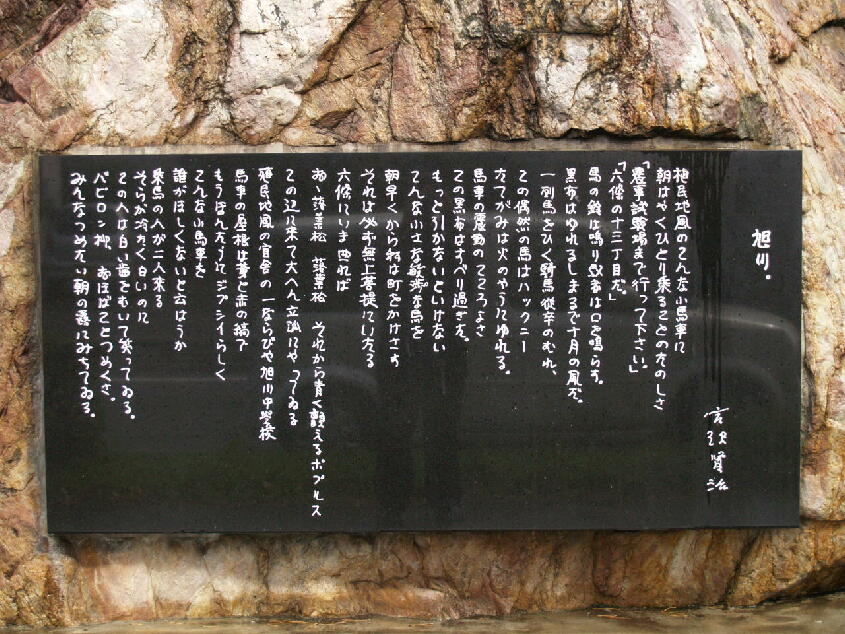 旭川。
宮沢賢治
植民地風のこんな小馬車に
朝はやくひとり乗ることのたのしさ
「農事試験場まで行って下さい。」
「六條の十三丁目だ。」
馬の鈴は鳴り馭者は口を鳴らす。
黒布はゆれるしまるで十月の風だ。
一列馬をひく騎馬従卒のむれ、
この偶然の馬はハックニー
たてがみは火のやうにゆれる。
馬車の震動のこころよさ
この黒布はすべり過ぎた。
もっと引かないといけない
こんな小さな敏渉な馬を
朝早くから私は町をかけさす
それは必ず無上菩提にいたる
六條にいま曲れば
おゝ落葉松 落葉松 それから青く顫えるポプルス
この辺に来て大へん立派にやってゐる
殖民地風の官舎の一ならびや旭川中学校
馬車の屋根は黄と赤の縞で
もうほんたうにジプシイらしく
こんな小馬車を
誰がほしくないと云はうか
乗馬の人が二人来る
そらが冷たく白いのに
この人は白い歯をむいて笑ってゐる。
バビロン柳、おほばことつめくさ。
みんなつめたい朝の露にみちてゐる。